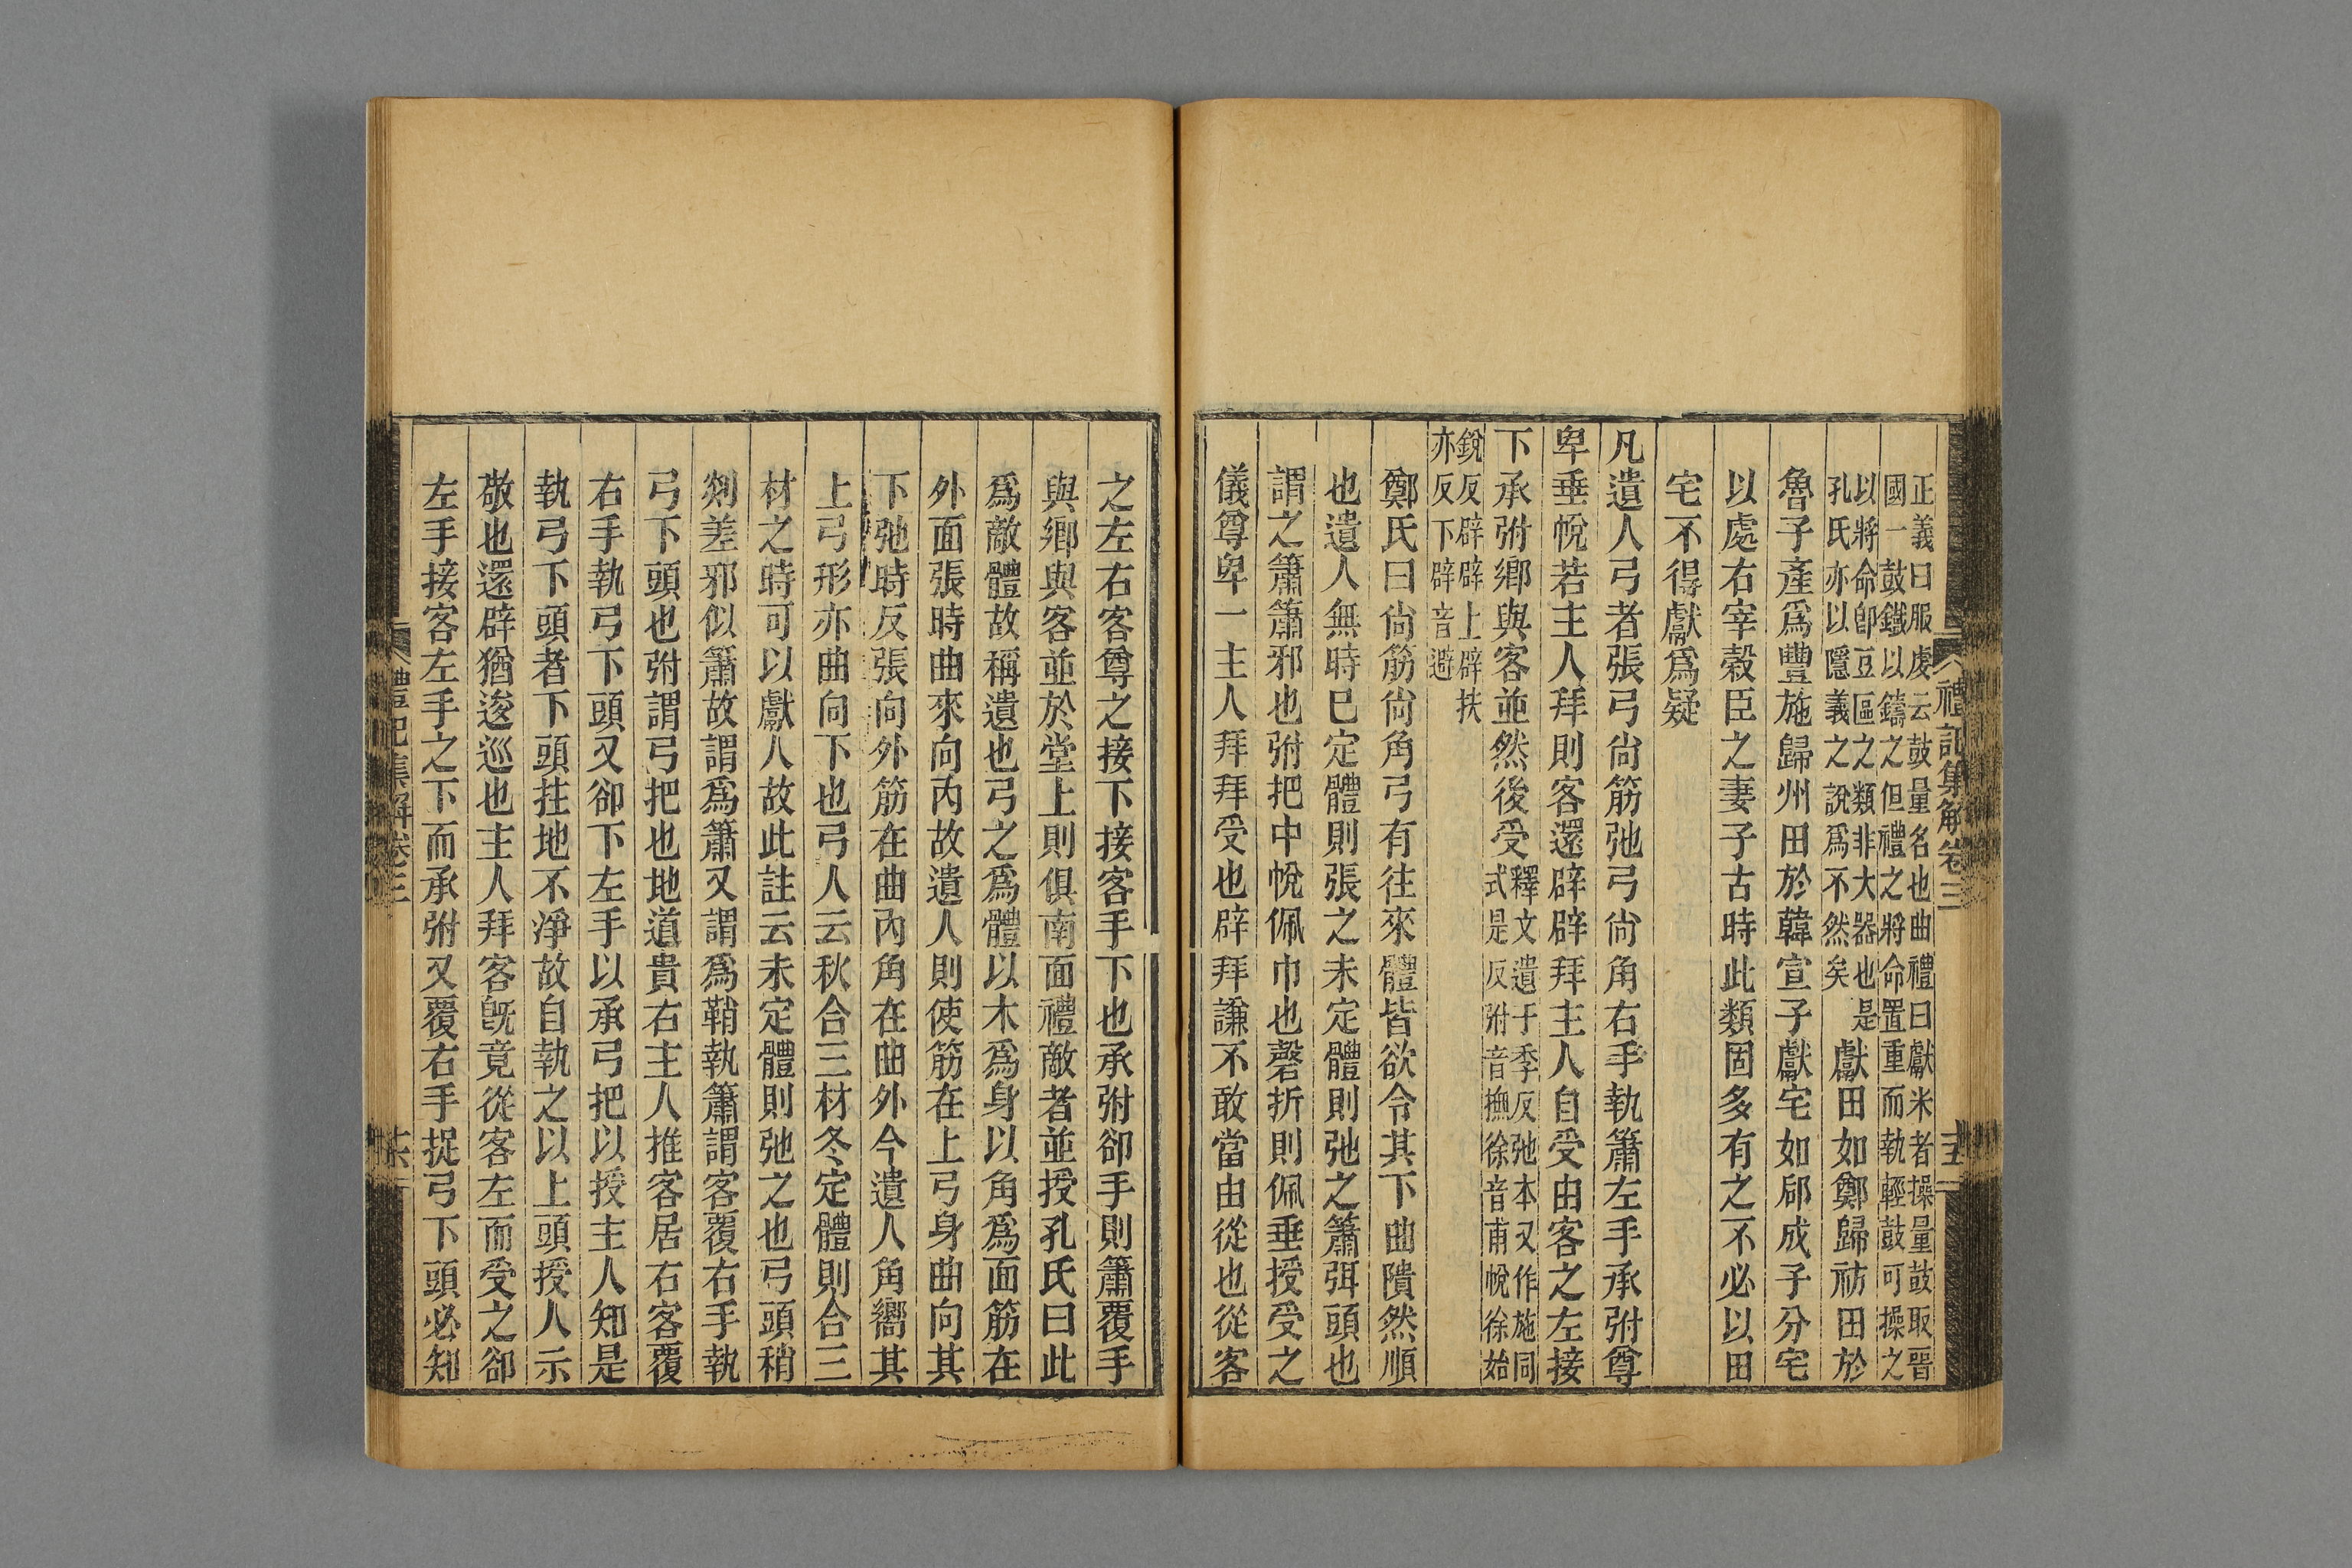 禮記集解卷三
正義曰服虔云鼓量名也曲禮曰獻米者操量鼓取晉
國一鼓鐵以鑄之但禮之將命置重而執輕鼓可操之
以將命卽豆區之類非大器也是
孔氏亦以隱義之說爲不然矣
獻田如鄭歸祊田於
魯子產爲豐施歸州田於韓宣子獻宅如郈成子分宅
以處右宰穀臣之妻子古時此類固多有之不必以田
宅不得獻爲疑
凡遺人弓者張弓尙筋弛弓尙角右手執簫左手承弣尊
卑垂帨若主人拜則客還辟辟拜主人自受由客之左接
下承弣鄉與客並然後受
釋文遺于季反弛本又作施同
式是反弣音撫徐音甫帨徐始
銳反辟辟上辟扶
亦反下辟音避
鄭氏曰尙筋尙角弓有往來體皆欲令其下曲隤然順
也遺人無時已定體則張之未定體則弛之簫弭頭也
謂之簫簫邪也弣把中帨佩巾也磬折則佩垂授受之
儀尊卑一主人拜拜受也辟拜謙不敢當由從也從客
之左右客尊之接下接客手下也承弣卻手則簫覆手
與鄉與客並於堂上則俱南面禮敵者並授孔氏曰此
爲敵體故稱遺也弓之爲體以木爲身以角爲面筋在
外面張時曲來向內故遺人則使筋在上弓身曲向其
下弛時反張向外筋在曲內角在曲外今遺人角嚮其
上弓形亦曲向下也弓人云秋合三材冬定體則合三
材之時可以獻人故此註云未定體則弛之也弓頭稍
剡差邪似簫故謂爲簫又謂爲鞘執簫謂客覆右手執
弓下頭也弣謂弓把也地道貴右主人推客居右客覆
右手執弓下頭又卻下左手以承弓把以授主人知是
執弓下頭者下頭拄地不淨故自執之以上頭授人示
敬也還辟猶逡巡也主人拜客旣竟從客左而受之卻
左手接客左手之下而承弣又覆右手捉弓下頭必知
禮記集解卷三